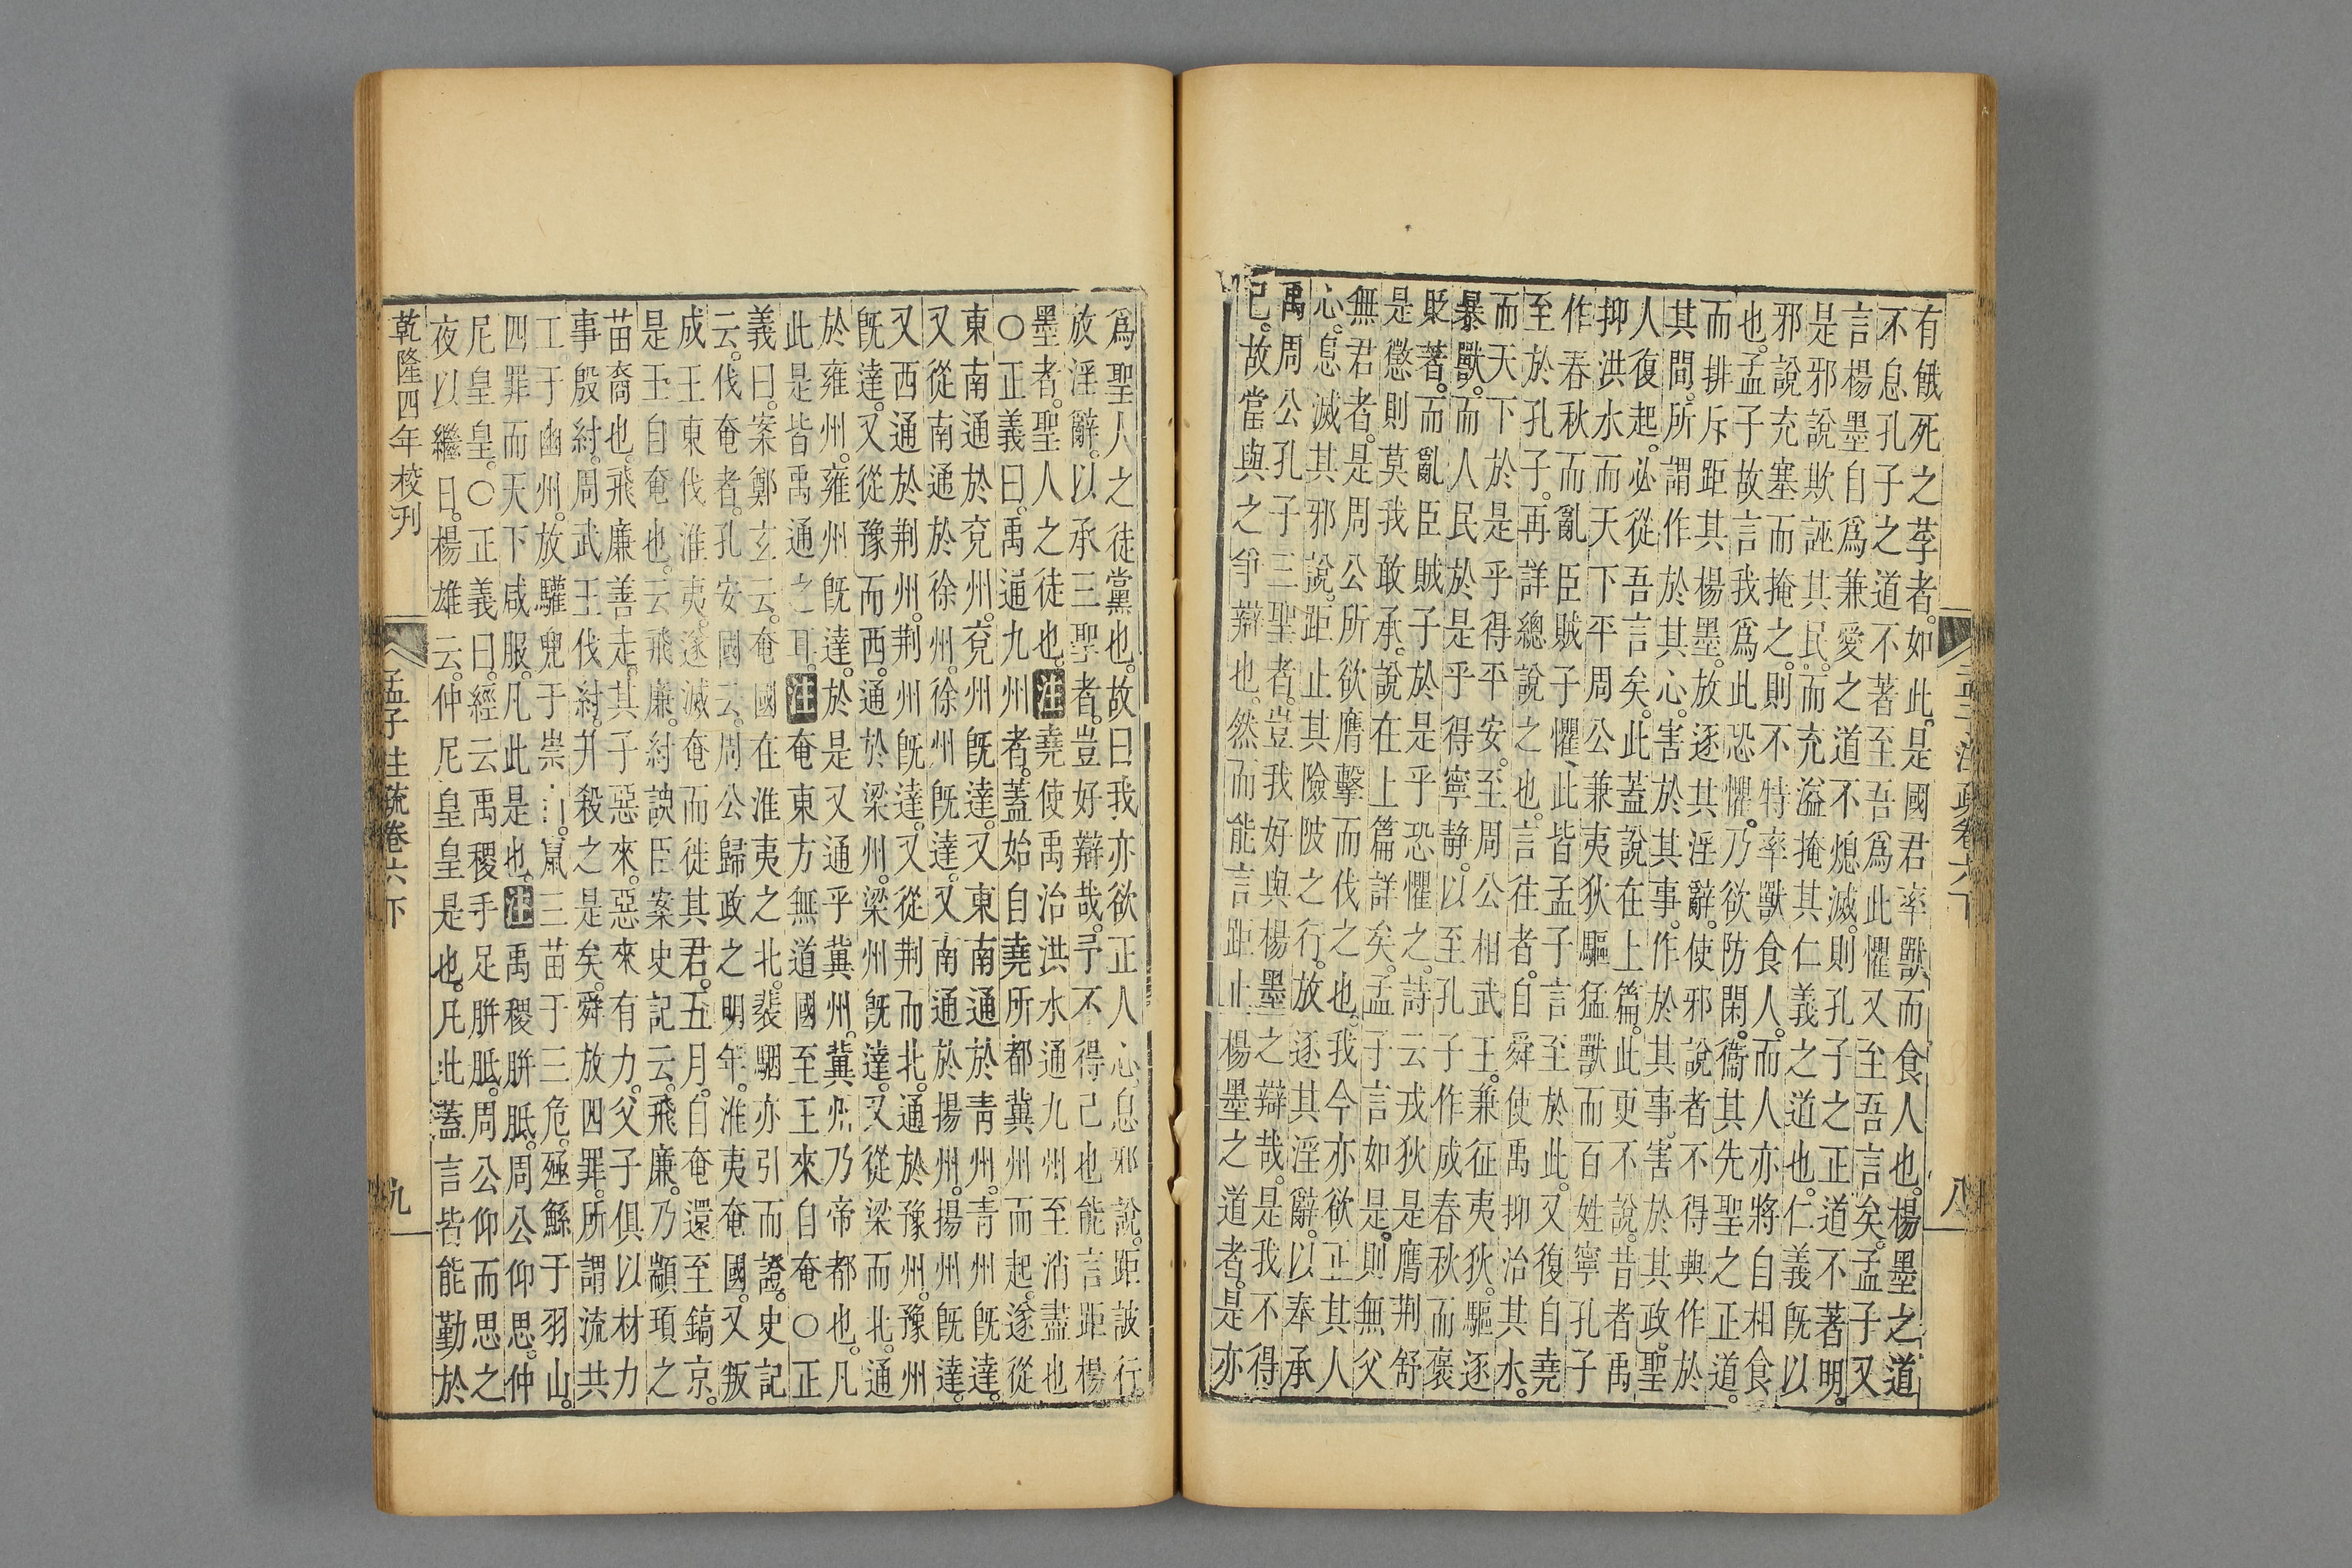 孟子注疏卷六下
八
有餓死之莩者。如此。是國君率獸而食人也。楊墨之道
不息孔子之道不著至吾爲此懼又至吾言矣。孟子又
言楊墨自爲兼愛之道不熄滅。則孔子之正道不著明。
是邪說欺誣其民。而充溢掩其仁義之道也。仁義既以
邪說充塞而掩之。則不特率獸食人。而人亦將自相食
也。孟子故言我爲此恐懼。乃欲防閑。衞其先聖之正道。
而排斥距其楊墨。放逐其淫辭。使邪說者不得興作於
其間。所謂作於其心。害於其事。作於其事。害於其政。聖
人復起。必從吾言矣。此蓋說在上篇。此更不說。昔者禹
抑洪水而天下平周公兼夷狄驅猛獸而百姓寧孔子
作春秋而亂臣賊子懼、此皆孟子言至於此。又復自堯
至於孔子。再詳總說之也。言往者。自舜使禹抑治其水。
而天下於是乎得平安。至周公相武王。兼征夷狄。驅逐
暴獸。而人民於是乎得寧静。以至孔子作成春秋而褒
貶著。而亂臣賊子於是乎恐懼之。詩云戎狄是膺荆舒
是懲則莫我敢承。說在上篇詳矣。孟于言如是。則無父
無君者。是周公所欲膺擊而伐之也。我今亦欲正其人
心。息滅其邪說。距止其險陂之行。放逐其淫辭。以奉承
禹周公孔子三聖者。豈我好與楊墨之辯哉。是我不得
已。故當與之爭辯也。然而能言距止楊墨之道者。是亦
爲聖人之徒黨也。故曰我亦欲正人心息邪說。距詖行。
放淫辭。以承三聖者。豈好辯哉。予不得已也能言距楊
墨者。聖人之徒也。注堯使禹治洪水通九州至消盡也
○正義曰。禹通九州者。蓋始自堯所都冀州而起。遂從
東南通於兗州。兗州既達。又東南通於靑州。青州既達。
又從南通於徐州。徐州既達。又南通於揚州。揚州既達。
又西通於荆州。荆州既達。又從荆而北。通於豫州。豫州
既達。又從豫而西。通於梁州。梁州既達。又從梁而北。通
於雍州。雍州既達。於是又通乎冀州。冀州乃帝都也。凡
此是皆禹通之耳。注奄東方無道國至王來自奄○正
義曰。案鄭玄云。奄國在淮夷之北。裴駰亦引而證。史記
云。伐奄者。孔安國云。周公歸政之明年。淮夷奄國。又叛
成王東伐淮夷。遂滅奄而徙其君。五月。自奄還至鎬京。
是王自奄也。云飛廉。紂諛臣案史記云。飛廉。乃顓頊之
苗裔也。飛廉善走。其子惡來。惡來有力。父子俱以材力
事殷紂。周武王伐紂。并殺之是矣。舜放四罪。所謂流共
工于幽州。放驩兜于崇山。竄三苗于三危。殛鯀于羽山。
四罪而天下咸服。凡此是也。注禹稷胼胝。周公仰思。仲
尼皇皇。○正義曰。經云禹稷手足胼胝。周公仰而思之
夜以繼日。楊雄云。仲尼皇皇是也。凡此蓋言皆能勤於
乾隆四年校刋
孟子注疏卷六下
九